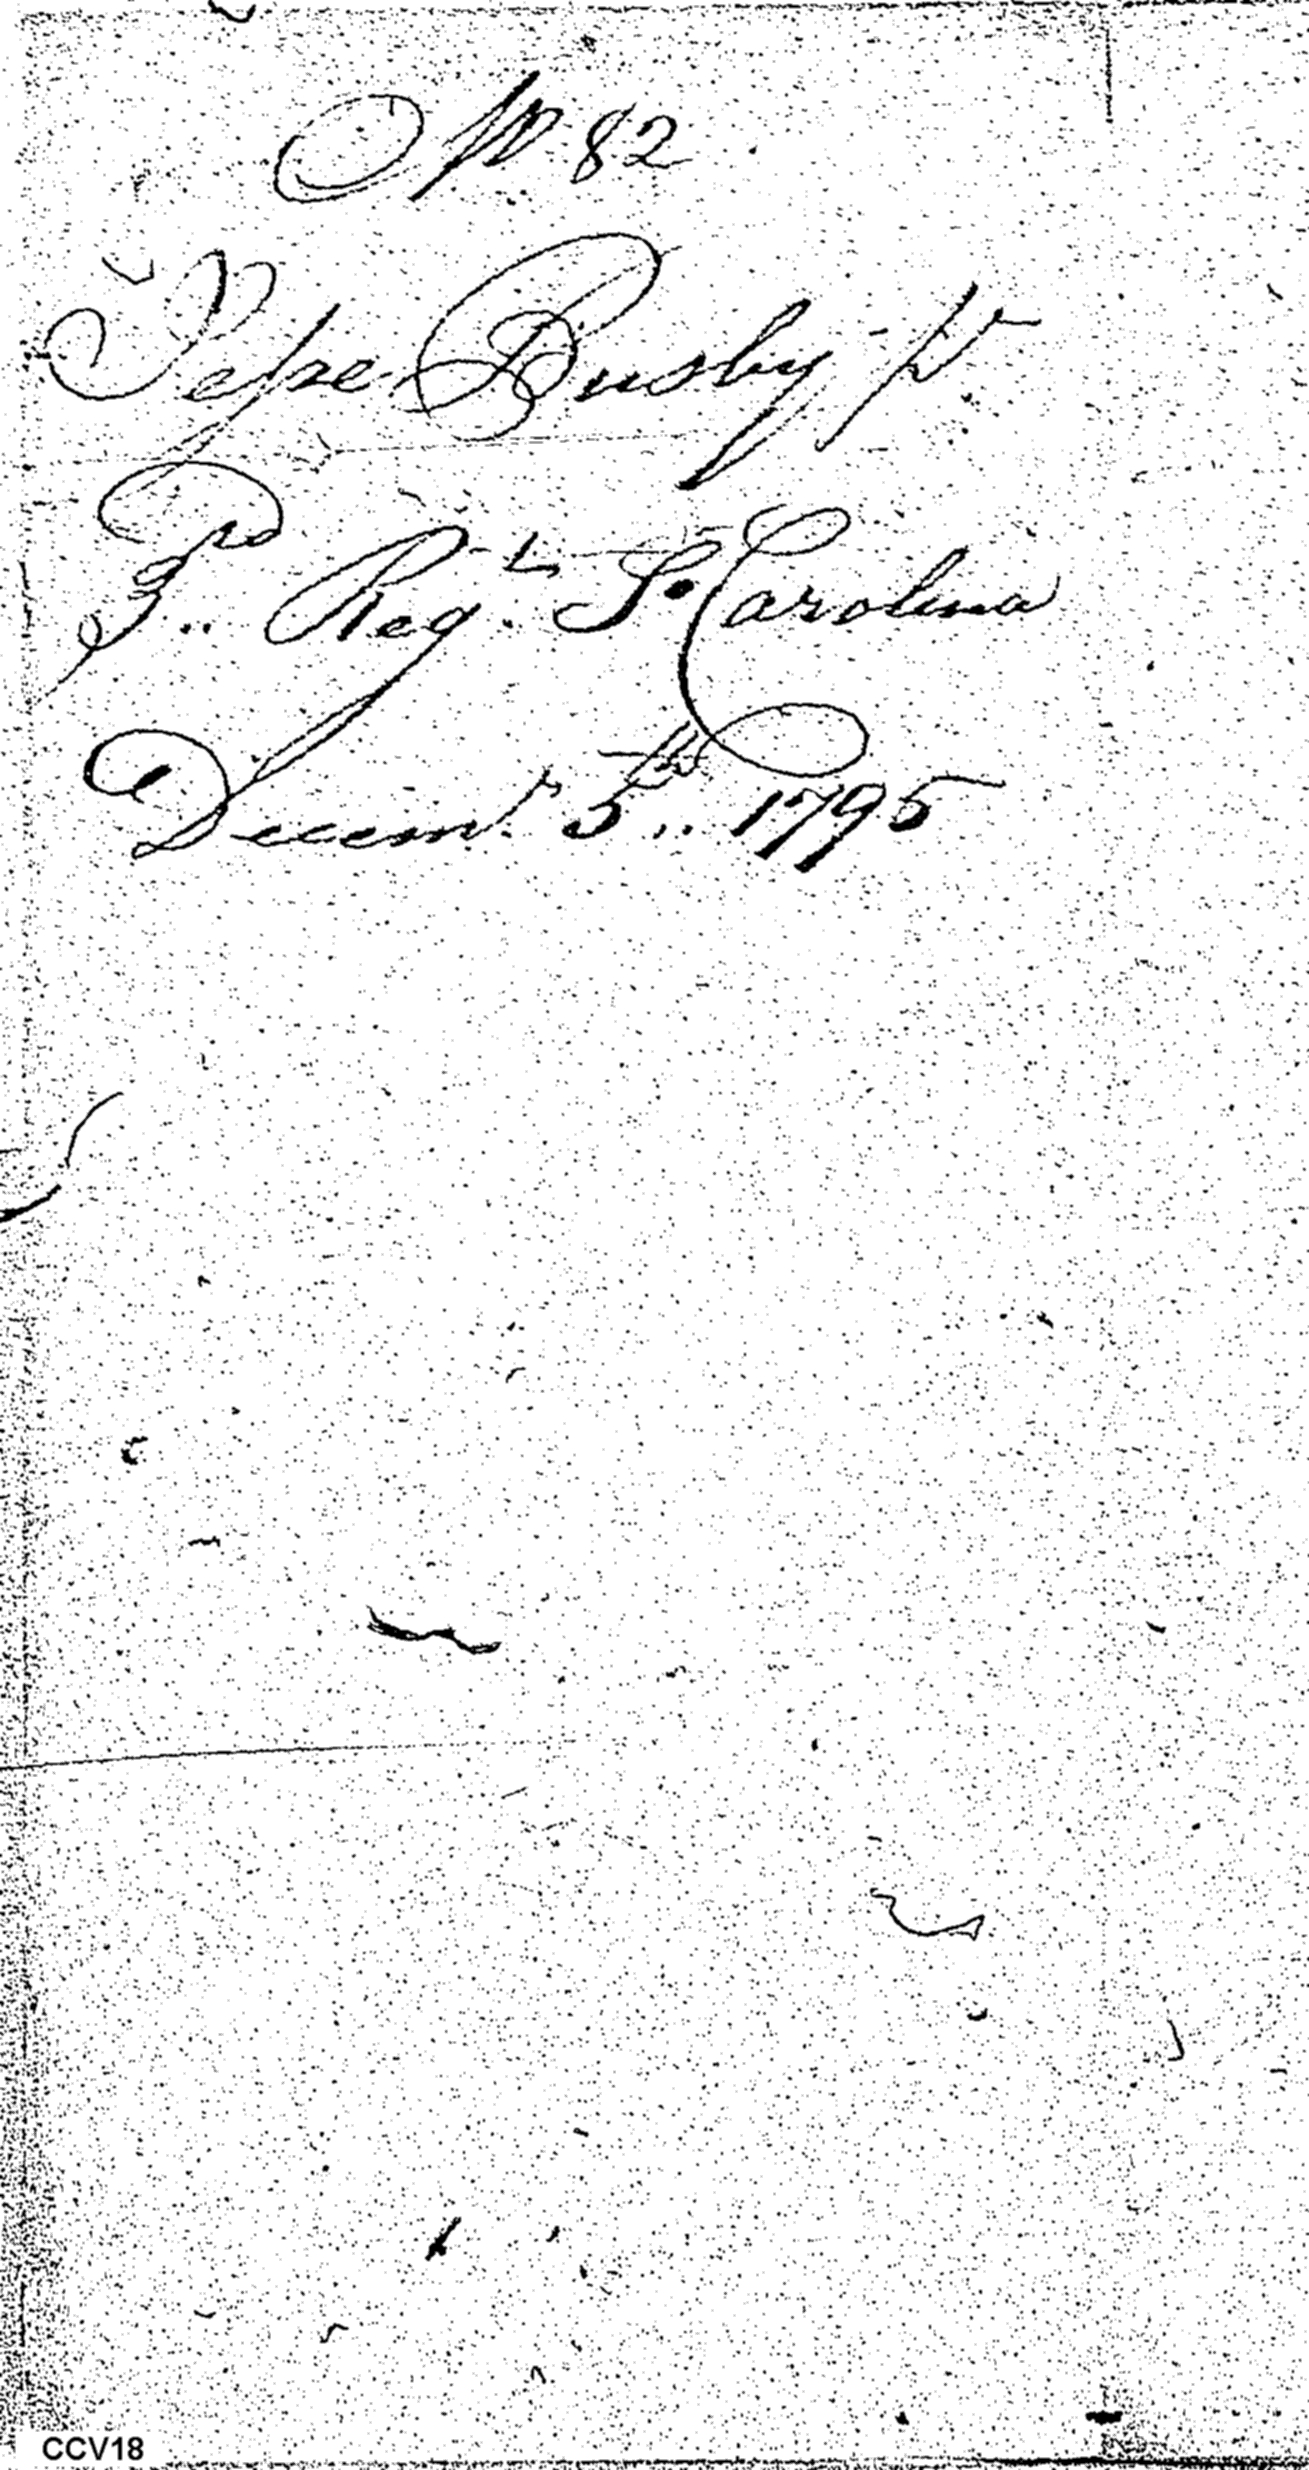 No 82
Jesse Busby pt
3rd.. Regt. So Carolina
Decemr. 5th.. 1795
CCV18